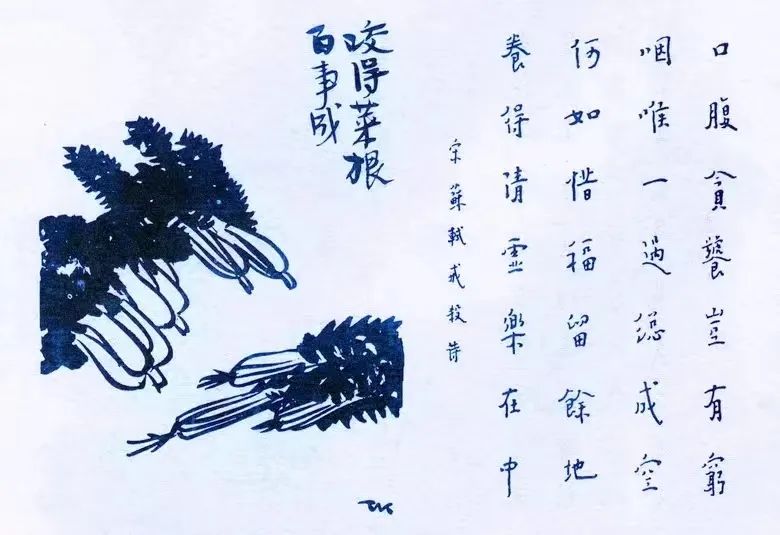 口腹貪饕豈有窮
咽喉一過總成空
何如惜福留餘地
養得清靈樂在中
宋蘇軾戒殺詩
咬得菜根
百事成
TK